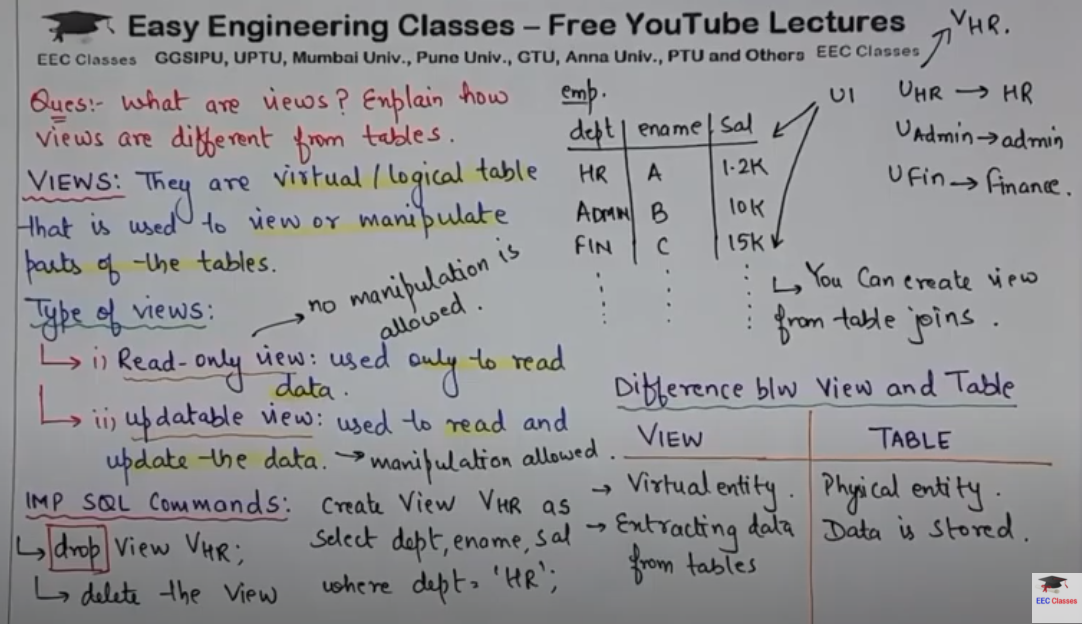 Easy Engineering Classes – Free YouTube Lectures
EEC Classes GGSIPU, UPTU, Mumbai Univ., Pune Univ., GTU, Anna Univ., PTU and Others EEC Classes
Ques:- What are views? Explain how
views are different from tables.
VIEWS: They are virtual / logical table
that is used to view or manipulate
parts of the tables.
Type of views:
no manipulation is
allowed.
i) Read-only view: used only to read
data.
ii) updatable view: used to read and
update the data. → manipulation allowed.
IMP SQL Commands:
drop View VHR;
delete the View
Create View VHR as
Select dept, ename, sal
where dept = 'HR';
emp.
dept | ename | Sal
HR A 1.2K
ADMN B 10K
FIN C 15K
U1
VHR.
UHR → HR
UAdmin → admin
UFin → finance.
You Can create view
from table joins.
Difference b/w View and Table
VIEW TABLE
→ Virtual entity. Physical entity.
→ Extracting data Data is Stored.
from tables
EEC Classes